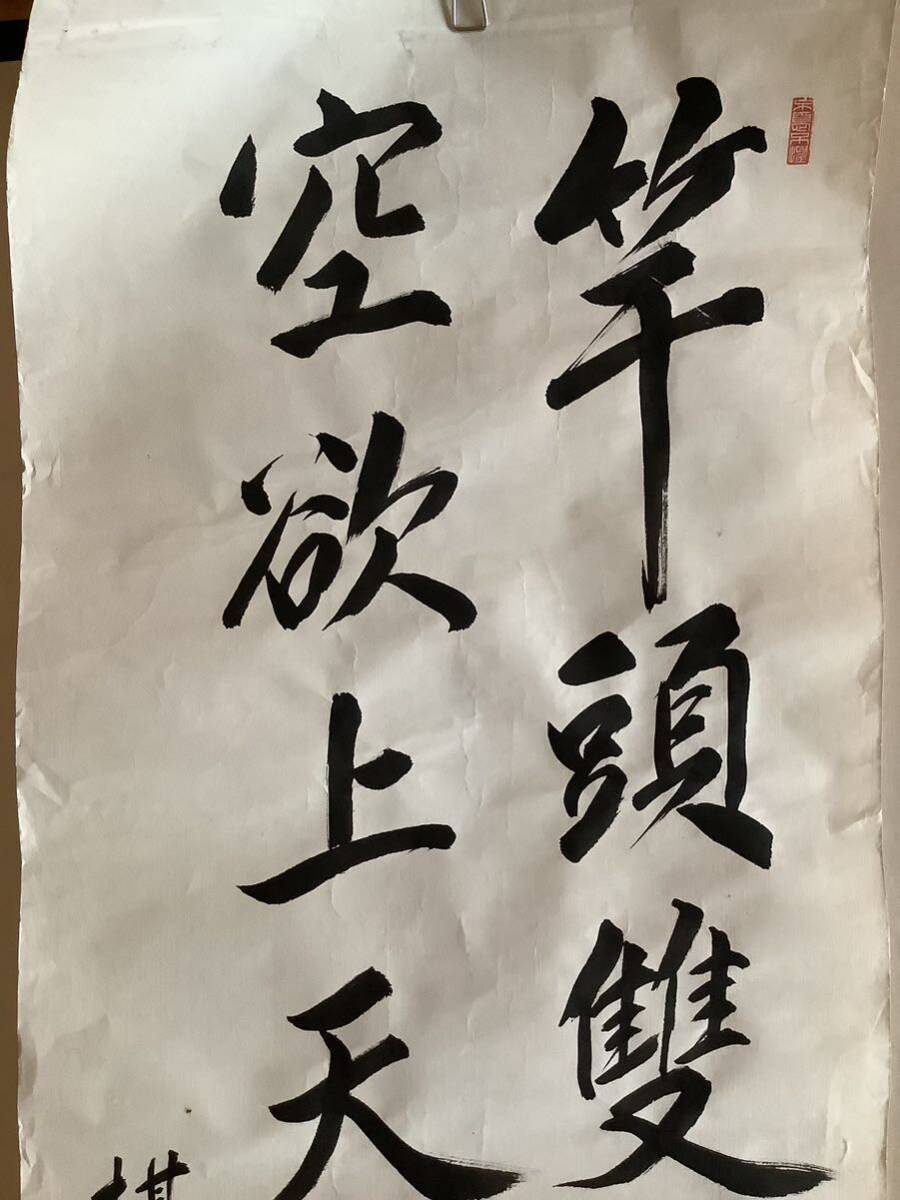 竿頭雙
空欲上天
棋